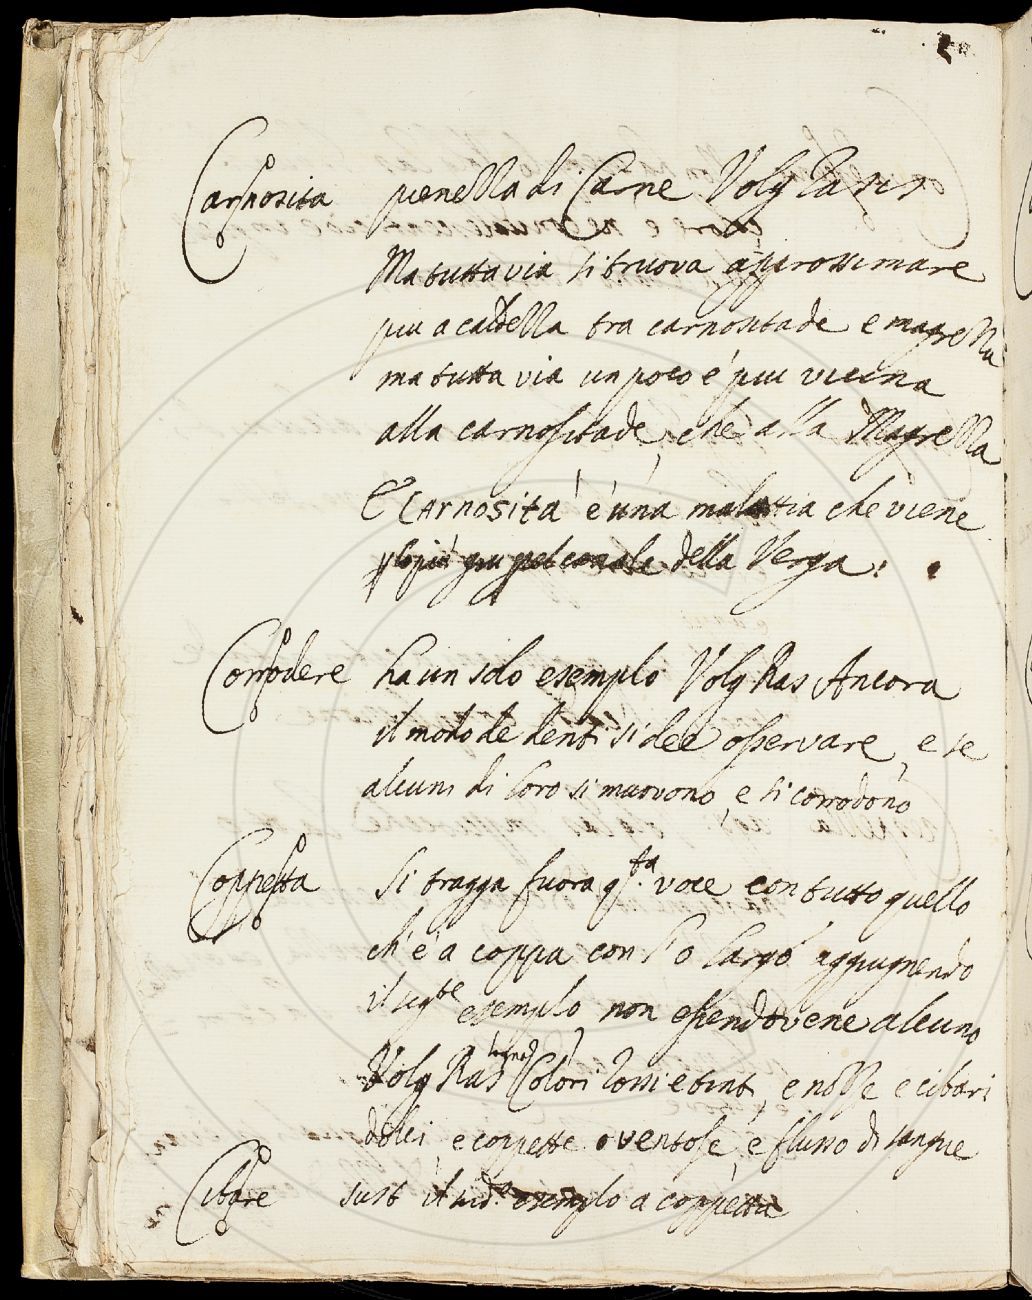 Carnosita pienezza di Carne Volg Rasis
Ma tuttavia si truova approssimare
piu a caldezza tra carnositade e magrezza
ma tutta via un poco è piu vicina
alla carnositade, che alla Magrezza
E Carnosità è una malattia che viene
della Verga.
Corrodere ha un solo esemplo Volg Ras Ancora
il modo de denti si dee osservare, e se
alcuni di loro si muovono, e si corrodono
Coppetta Si tragga fuora qsta voce con tutto quello
ch'è a coppa con l'o largo aggiugnendo
il segte esemplo, non essendovene alcuno
Volg Ras Colori rossi e tinti, e nozze e cibari
dolci, e coppette o ventose, e flusso di sangue
Cibare sust il mdo esemplo a coppetta